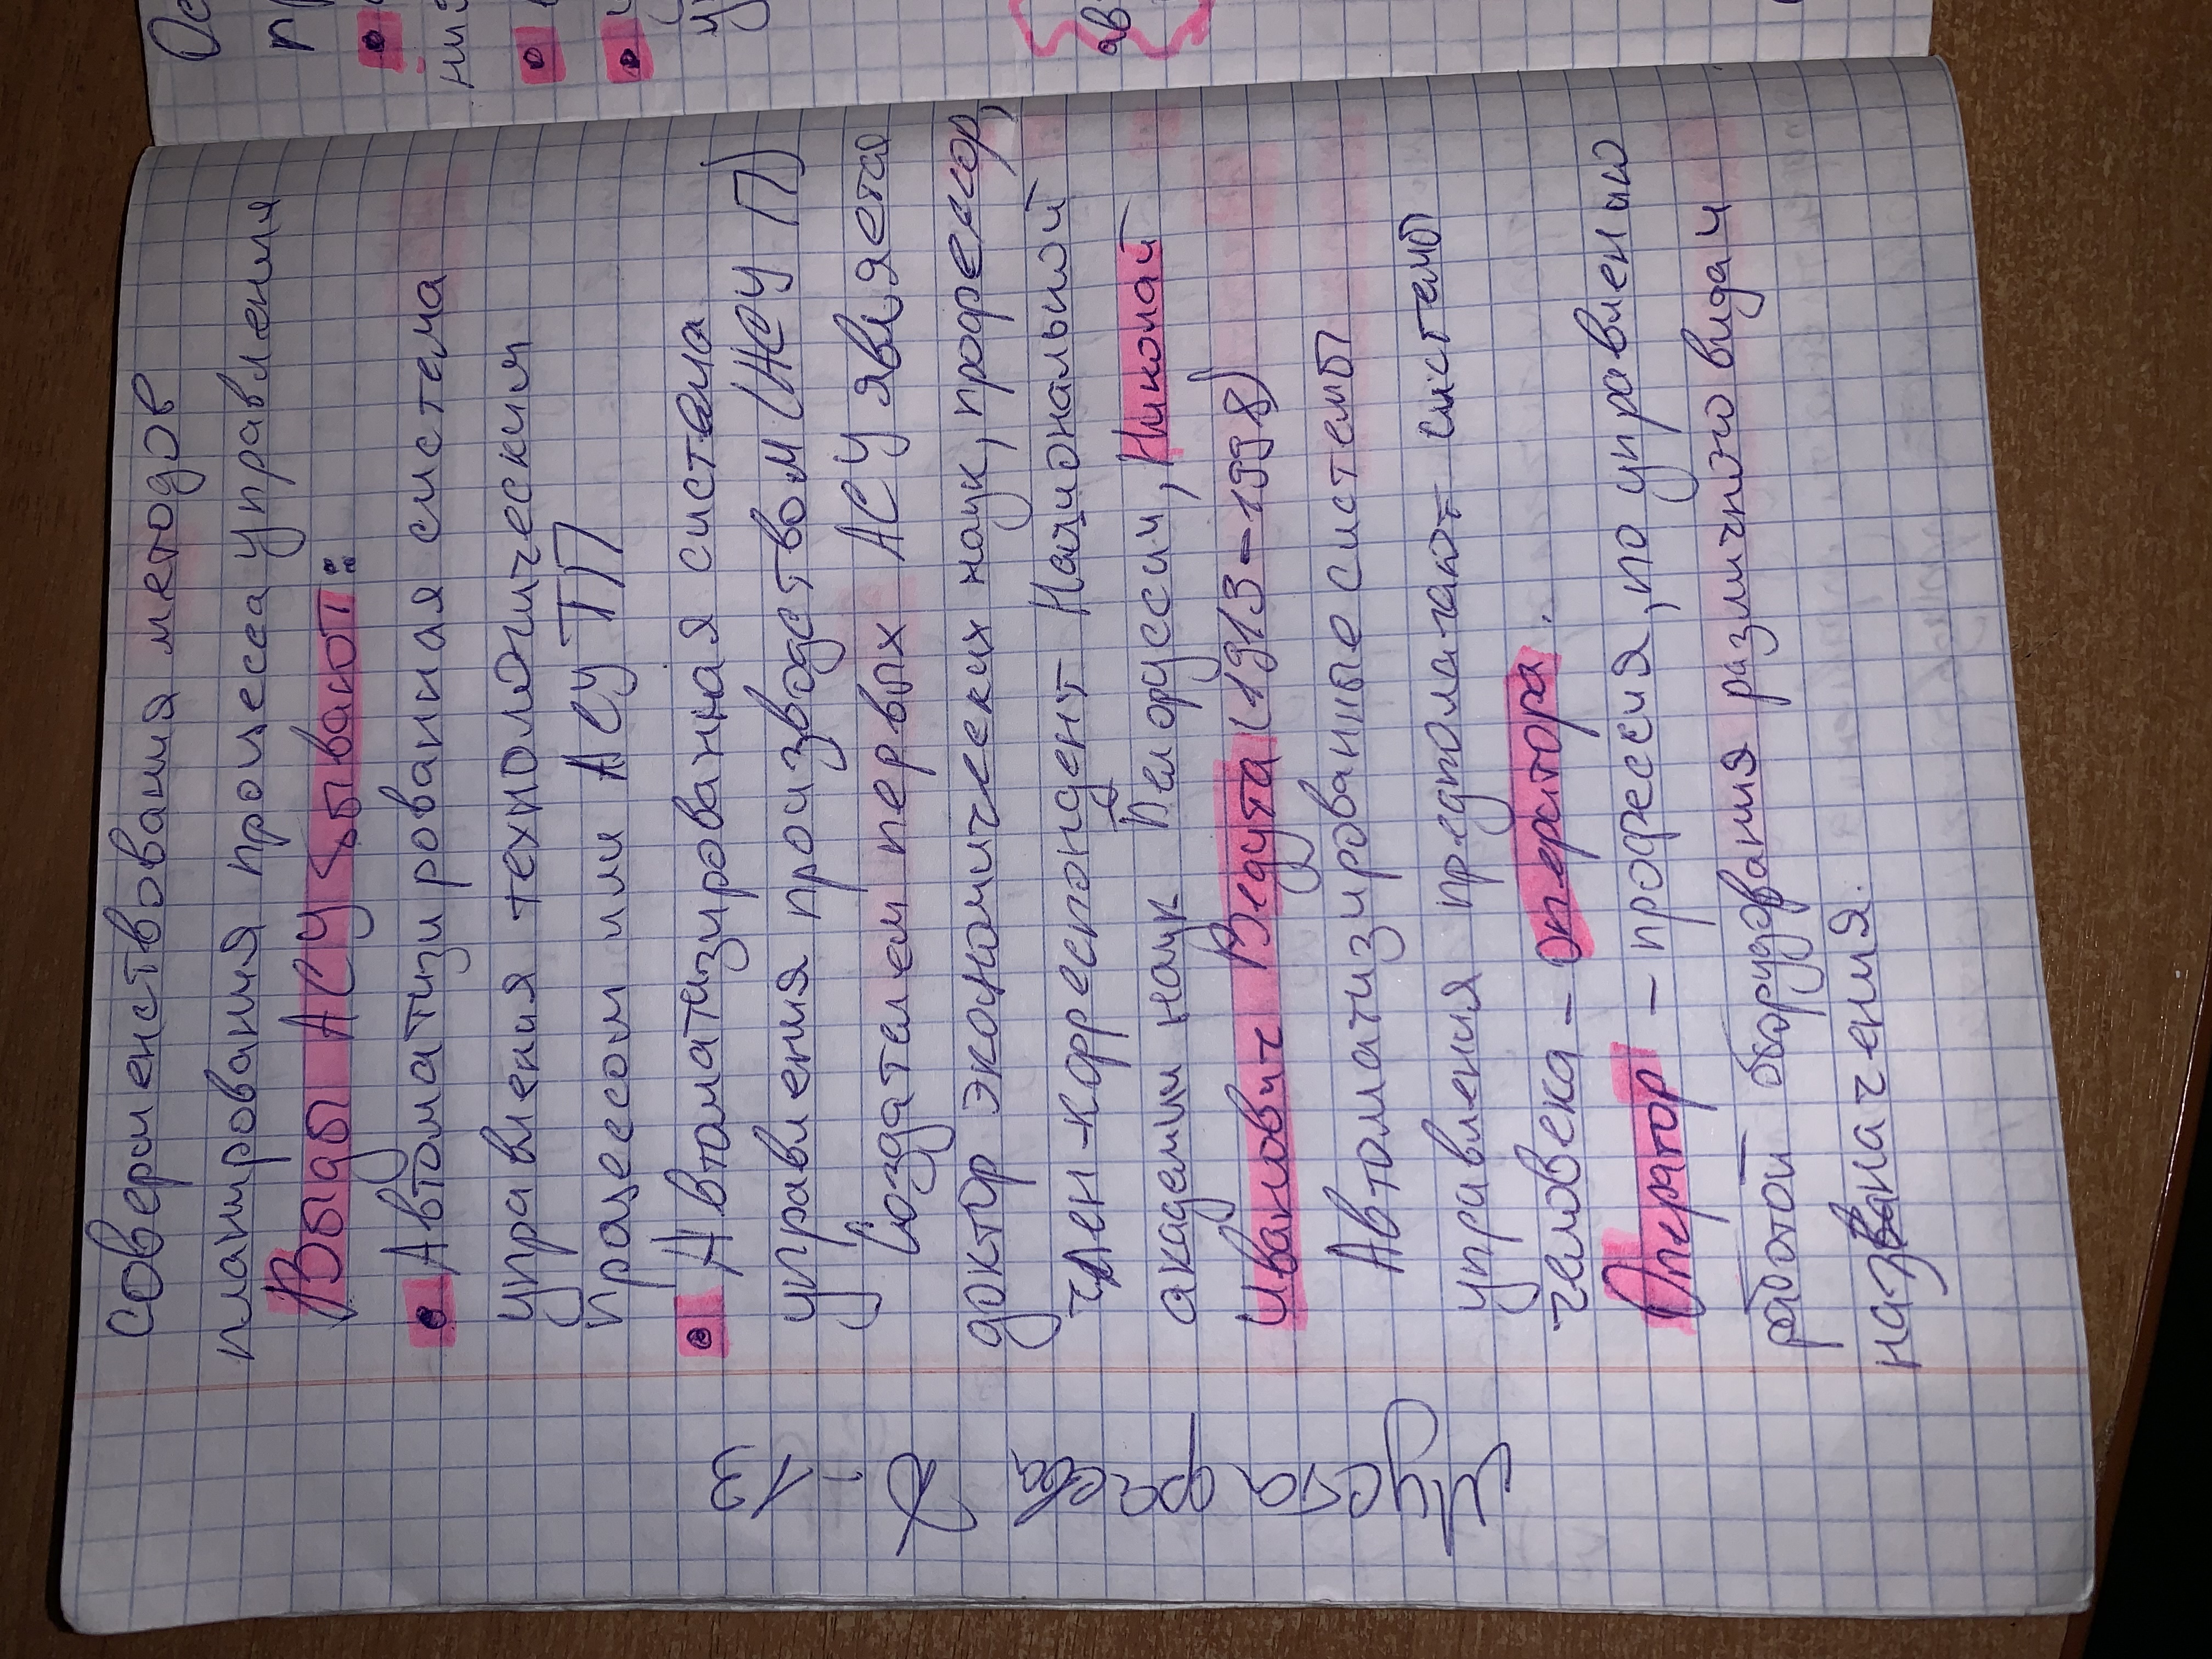 совершенствования методов
планирования процесса управления
Виды АСУ бывают:
• Автоматизированная система
управления технологическия
процессом или АСУ ТП
• Автоматизированная система
управления производством (АСУ П)
Создателем первых АСУ является
доктор экономических наук, профессор,
член-корреспондент Национальной
академии наук Белоруссии, Николай
Иванович Ведута (1913-1998)
Автоматизированные системы
управления предполагают системы
человека - оператора.
Оператор - профессия, по управлению
работой оборудования различного вида и
назначения.
13